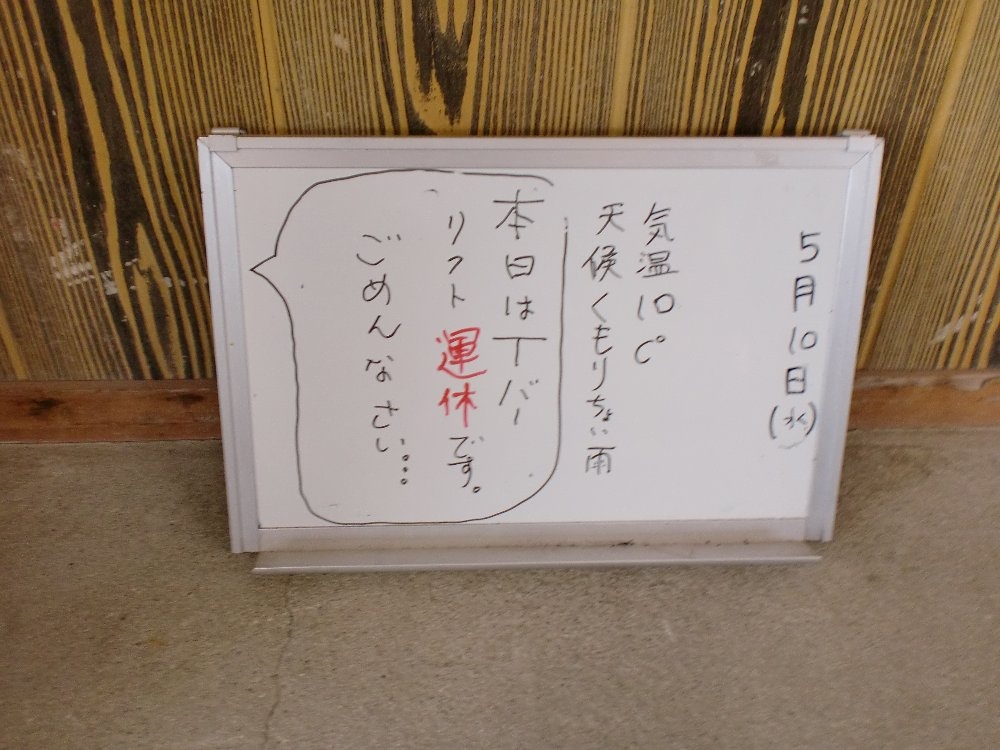 5月10日(水)
気温10℃
天候くもりちょい雨
本日はTバー
リフト運休です。
ごめんなさい...